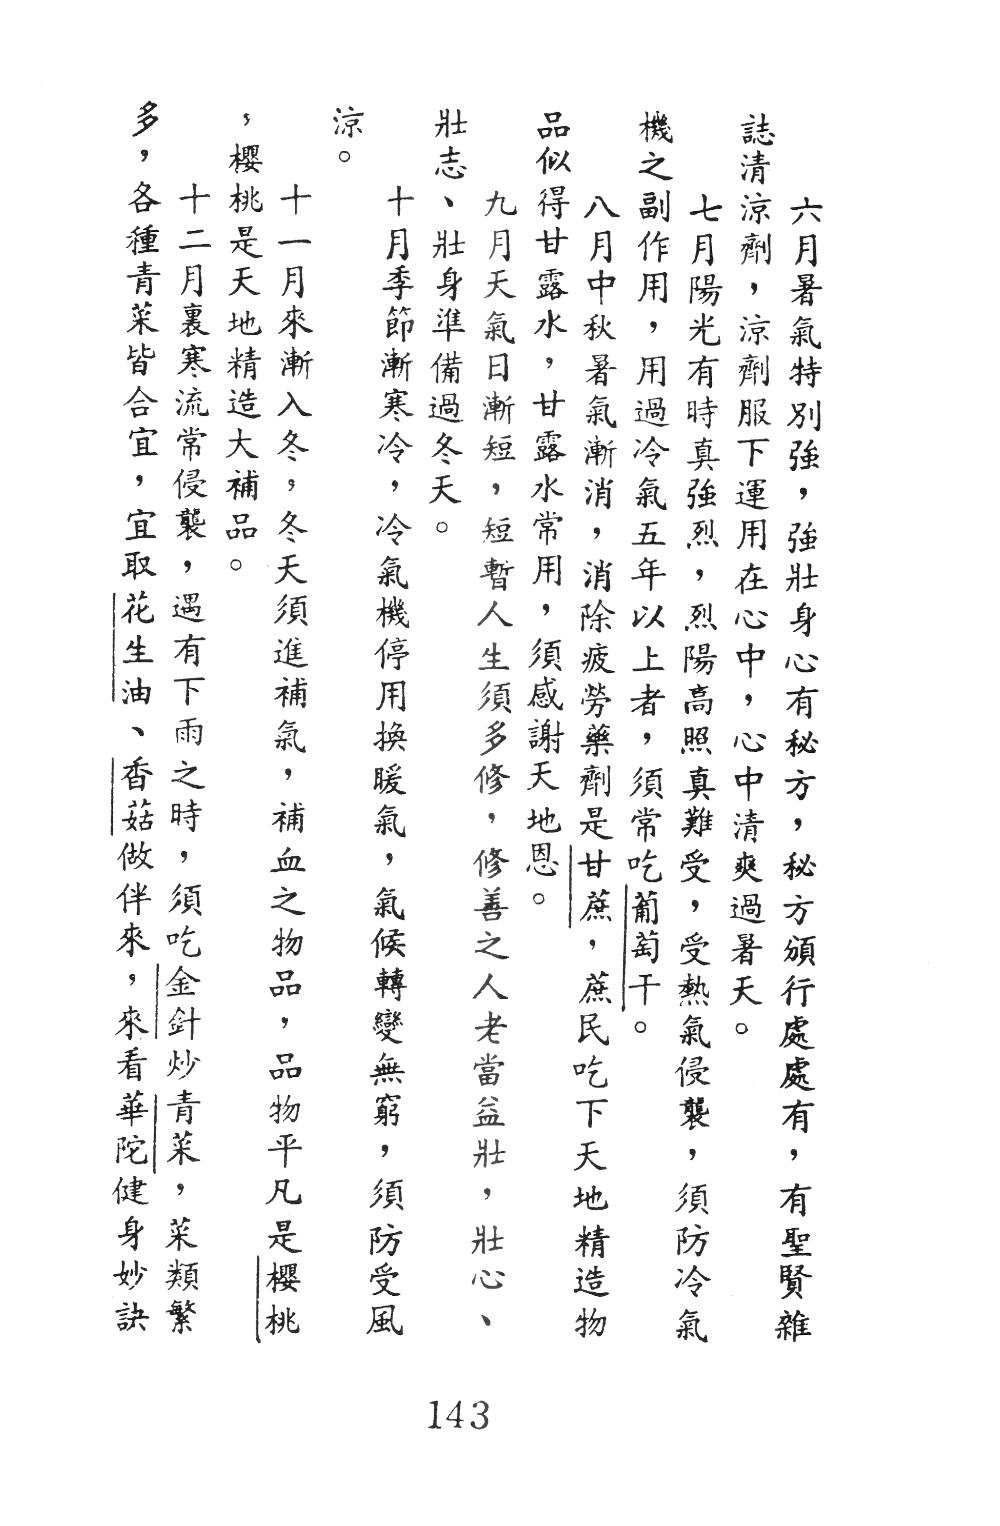 六月暑氣特別強，強壯身心有秘方，秘方頒行處處有，有聖賢雜
誌清涼劑，涼劑服下運用在心中，心中清爽過暑天。
七月陽光有時真強烈，烈陽高照真難受，受熱氣侵襲，須防冷氣
機之副作用，用過冷氣五年以上者，須常吃葡萄干。
八月中秋暑氣漸消，消除疲勞藥劑是甘蔗，蔗民吃下天地精造物
品似得甘露水，甘露水常用，須感謝天地恩。
九月天氣日漸短，短暫人生須多修，修善之人老當益壯，壯心、
壯志、壯身準備過冬天。
十月季節漸寒冷，冷氣機停用換暖氣，氣候轉變無窮，須防受風
涼。
十一月來漸入冬，冬天須進補氣，補血之物品，品物平凡是櫻桃
，櫻桃是天地精造大補品。
十二月裏寒流常侵襲，遇有下雨之時，須吃金針炒青菜，菜類繁
多，各種青菜皆合宜，宜取花生油、香菇做伴來，來看華陀健身妙訣
143